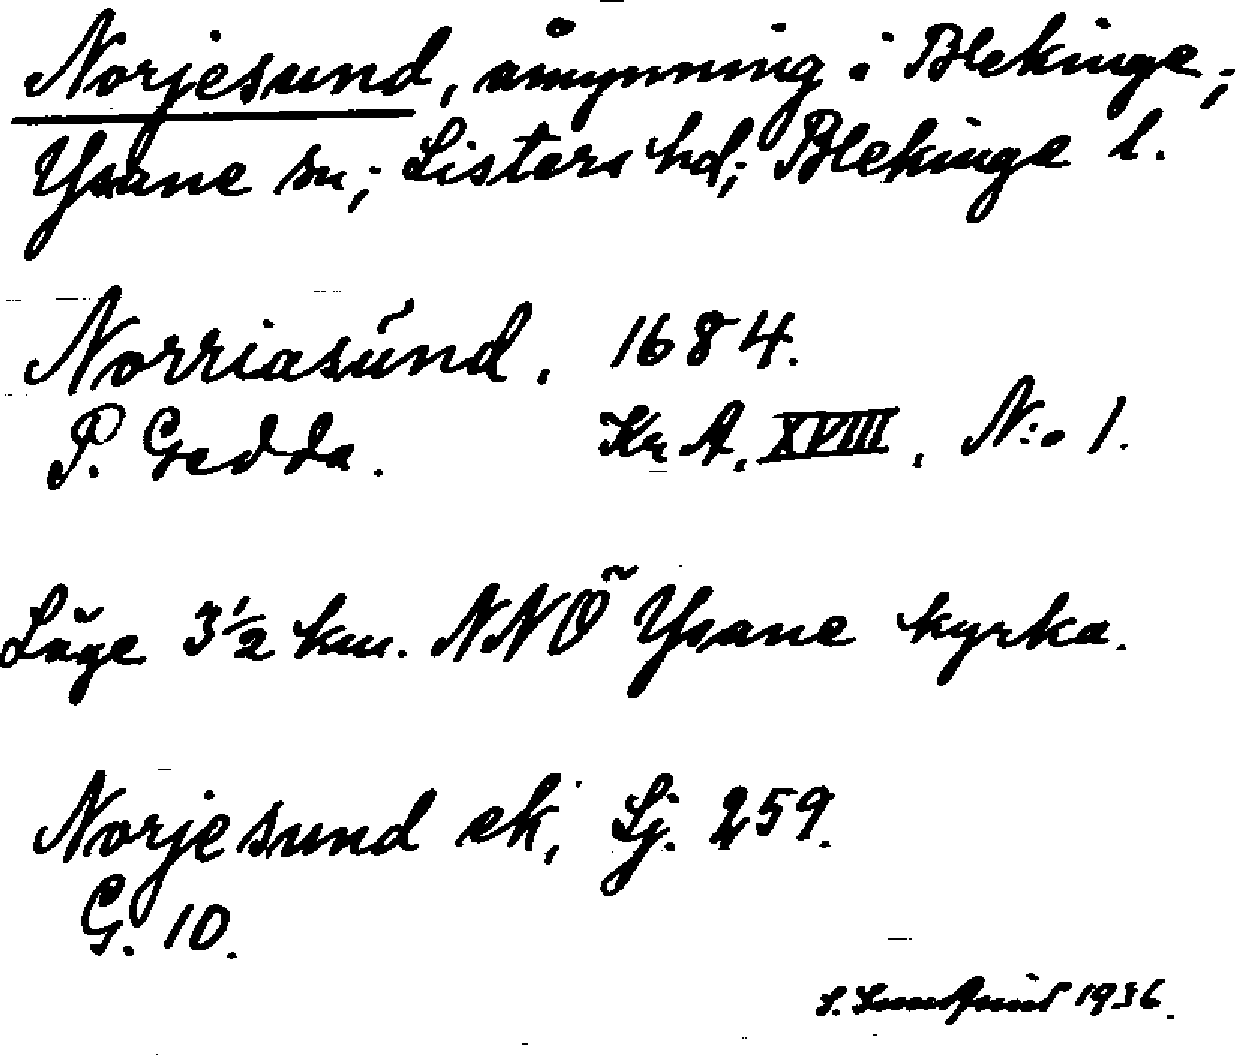 Norjesund, åmynning i Blekinge;
Ysane sn; Listers hd; Blekinge l.
Norriasund. 1684.
P. Gedda. Kr A. XVIII, N:o 1.
Läge 3½ km. NNÖ Ysane kyrka.
Norjesund ek, Sj. 259.
G. 10.
1936.